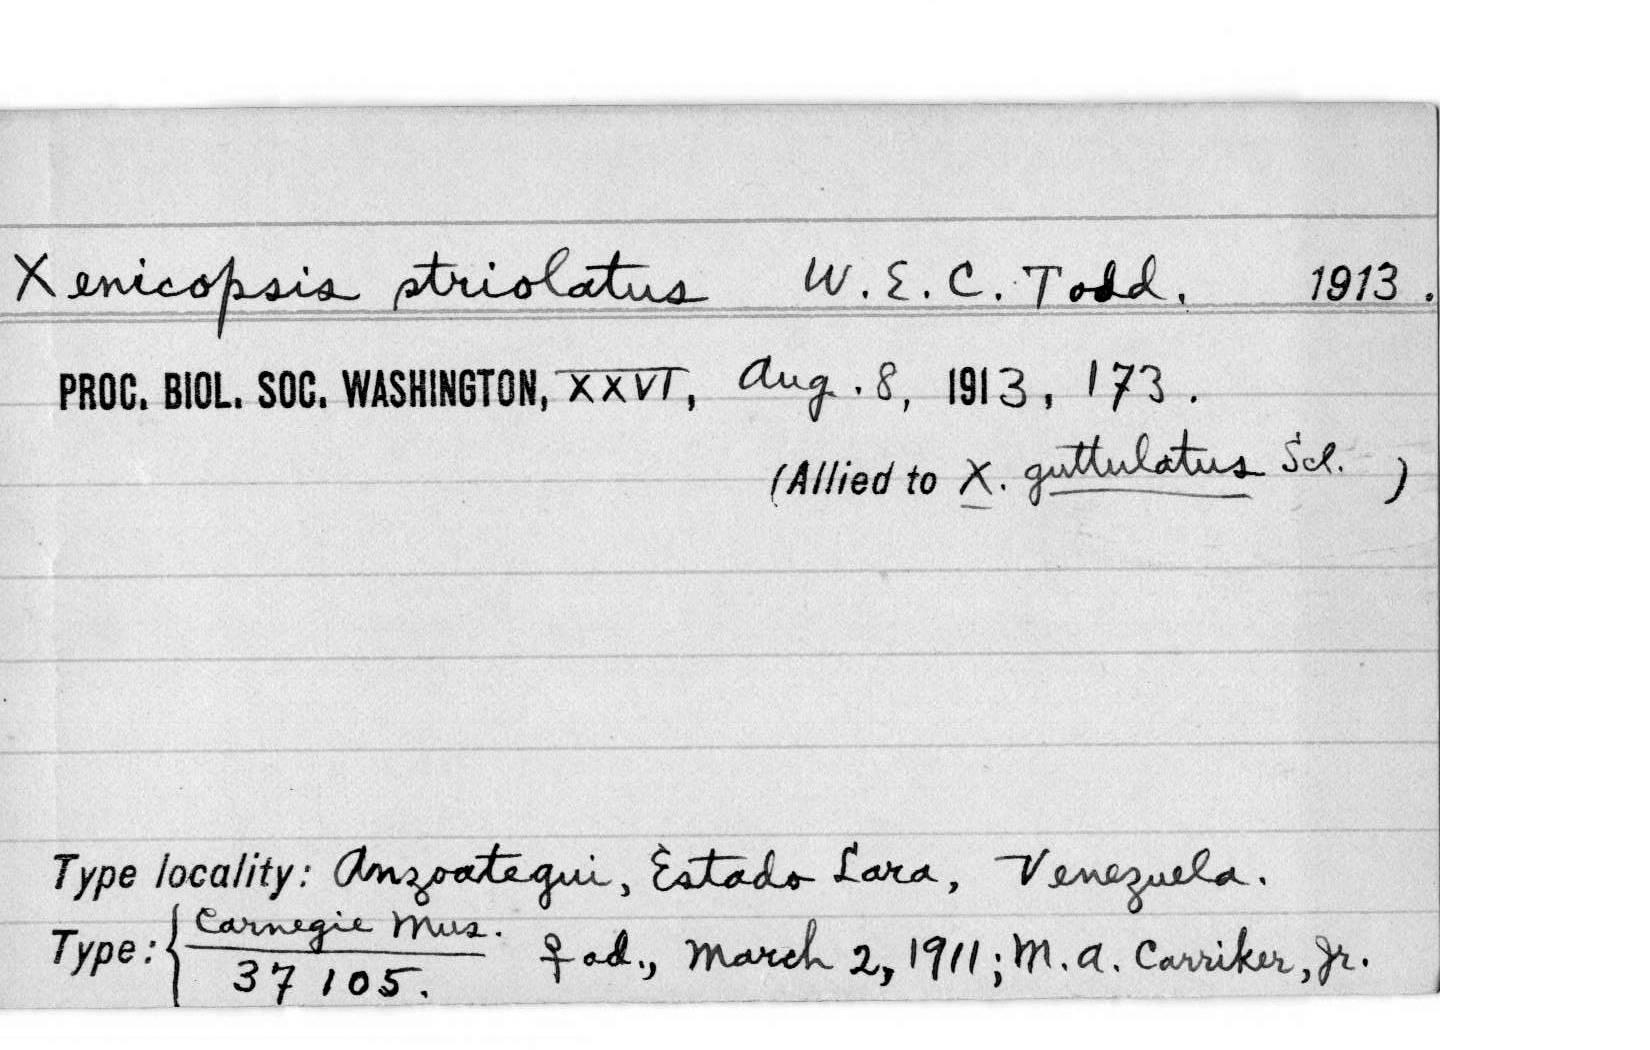 Xenicopsis striolatus W. E. C. Todd. 1913.
PROC. BIOL. SOC. WASHINGTON, XXVI, Aug. 8, 1913, 173.
(Allied to X. guttulatus Scl. )
Type locality: Anzoategui, Estado Lara, Venezuela.
Type: { Carnegie Mus.
37105. ♀ ad., March 2, 1911; M. A. Carriker, Jr.